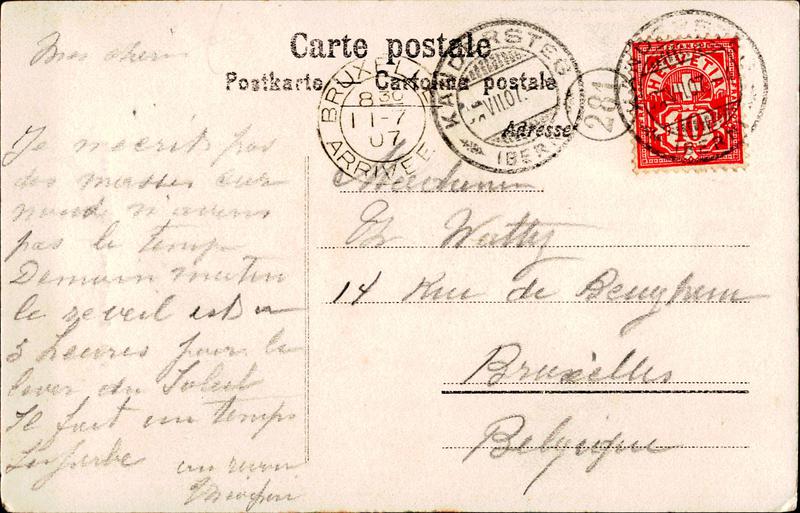 Carte postale
Postkarte — Cartolina postale
BRUXELLES
8 30
11-7
07
ARRIVÉE
KANDERSTEG
VII.07.
(BERN)
281
HELVETIA
10
Adresse
Mon chéri
Je n'écris pas
des masses car
nous n'avons
pas le temps
Demain matin
le reveil est a
3 heures pour le
lever du Soleil
Il fait un temps
Superbe
un
Watty
14 Rue de Beughem
Bruxelles
Belgique